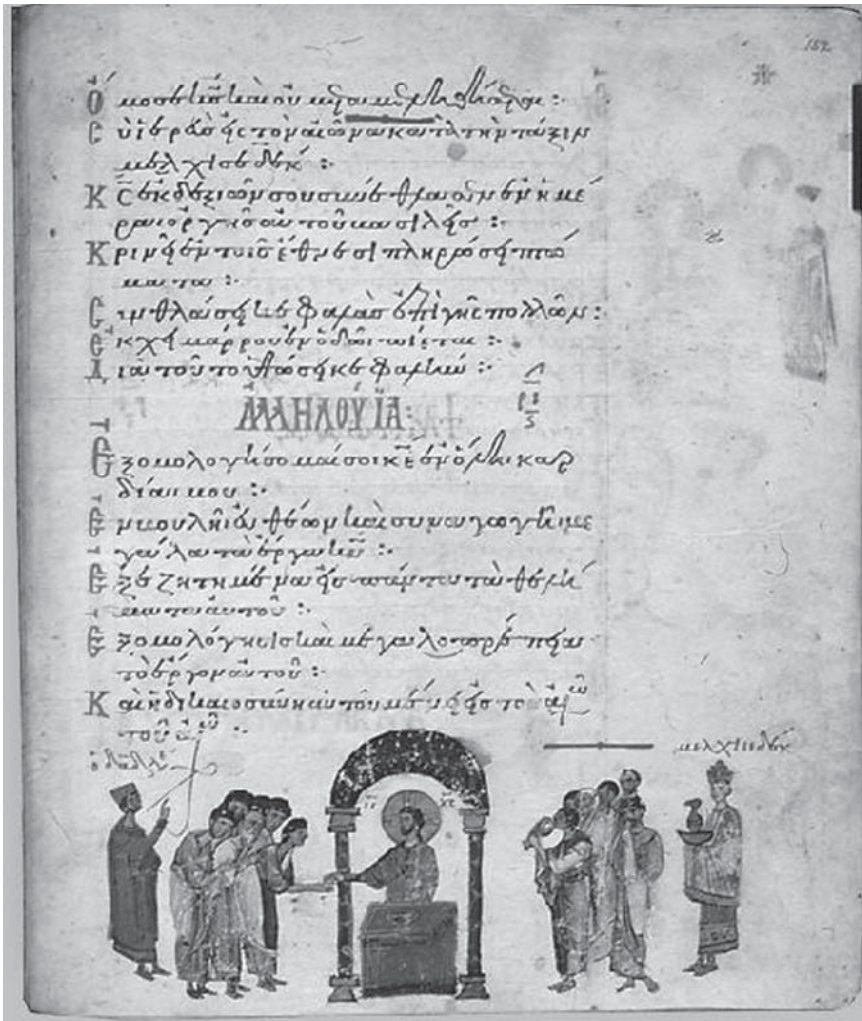 Ὄμοσεν κ̅ς̅ καὶ οὐ μεταμεληθήσεται :
Σὺ ἱερεὺς εἰς τὸν αἰῶνα κατὰ τὴν τάξιν
μελχισεδέκ :
Κ̅ς̅ ἐκ δεξιῶν σου συνέθλασεν ἐν ἡμέ
ρα ὀργῆς αὐτοῦ βασιλεῖς :
Κρινεῖ ἐν τοῖς ἔθνεσι πληρώσει πτώ
ματα :
Συνθλάσει κεφαλὰς ἐπὶ γῆς πολλῶν :
Ἐκ χειμάρρου ἐν ὁδῶ πίεται :
Διὰ τοῦτο ὑψώσει κεφαλήν :
ἈΛΛΗΛΟΎΪΑ :
Ἐξομολογήσομαί σοι κ̅ε̅ ἐν ὅλη καρ
δία μου :
Ἐν βουλῆ εὐθέων καὶ συναγωγῆ με
γάλα τὰ ἔργα κ̅υ̅ :
Ἐξεζητημένα εἰς πάντα τὰ θελή
ματα αὐτοῦ :
Ἐξομολόγησις καὶ μεγαλοπρέπεια
τὸ ἔργον αὐτοῦ :
Καὶ ἡ δικαιοσύνη αὐτοῦ μένει εἰς τὸν αἰῶ
τοῦ αἰῶ :
μελχισεδέκ
ΙC ΧC